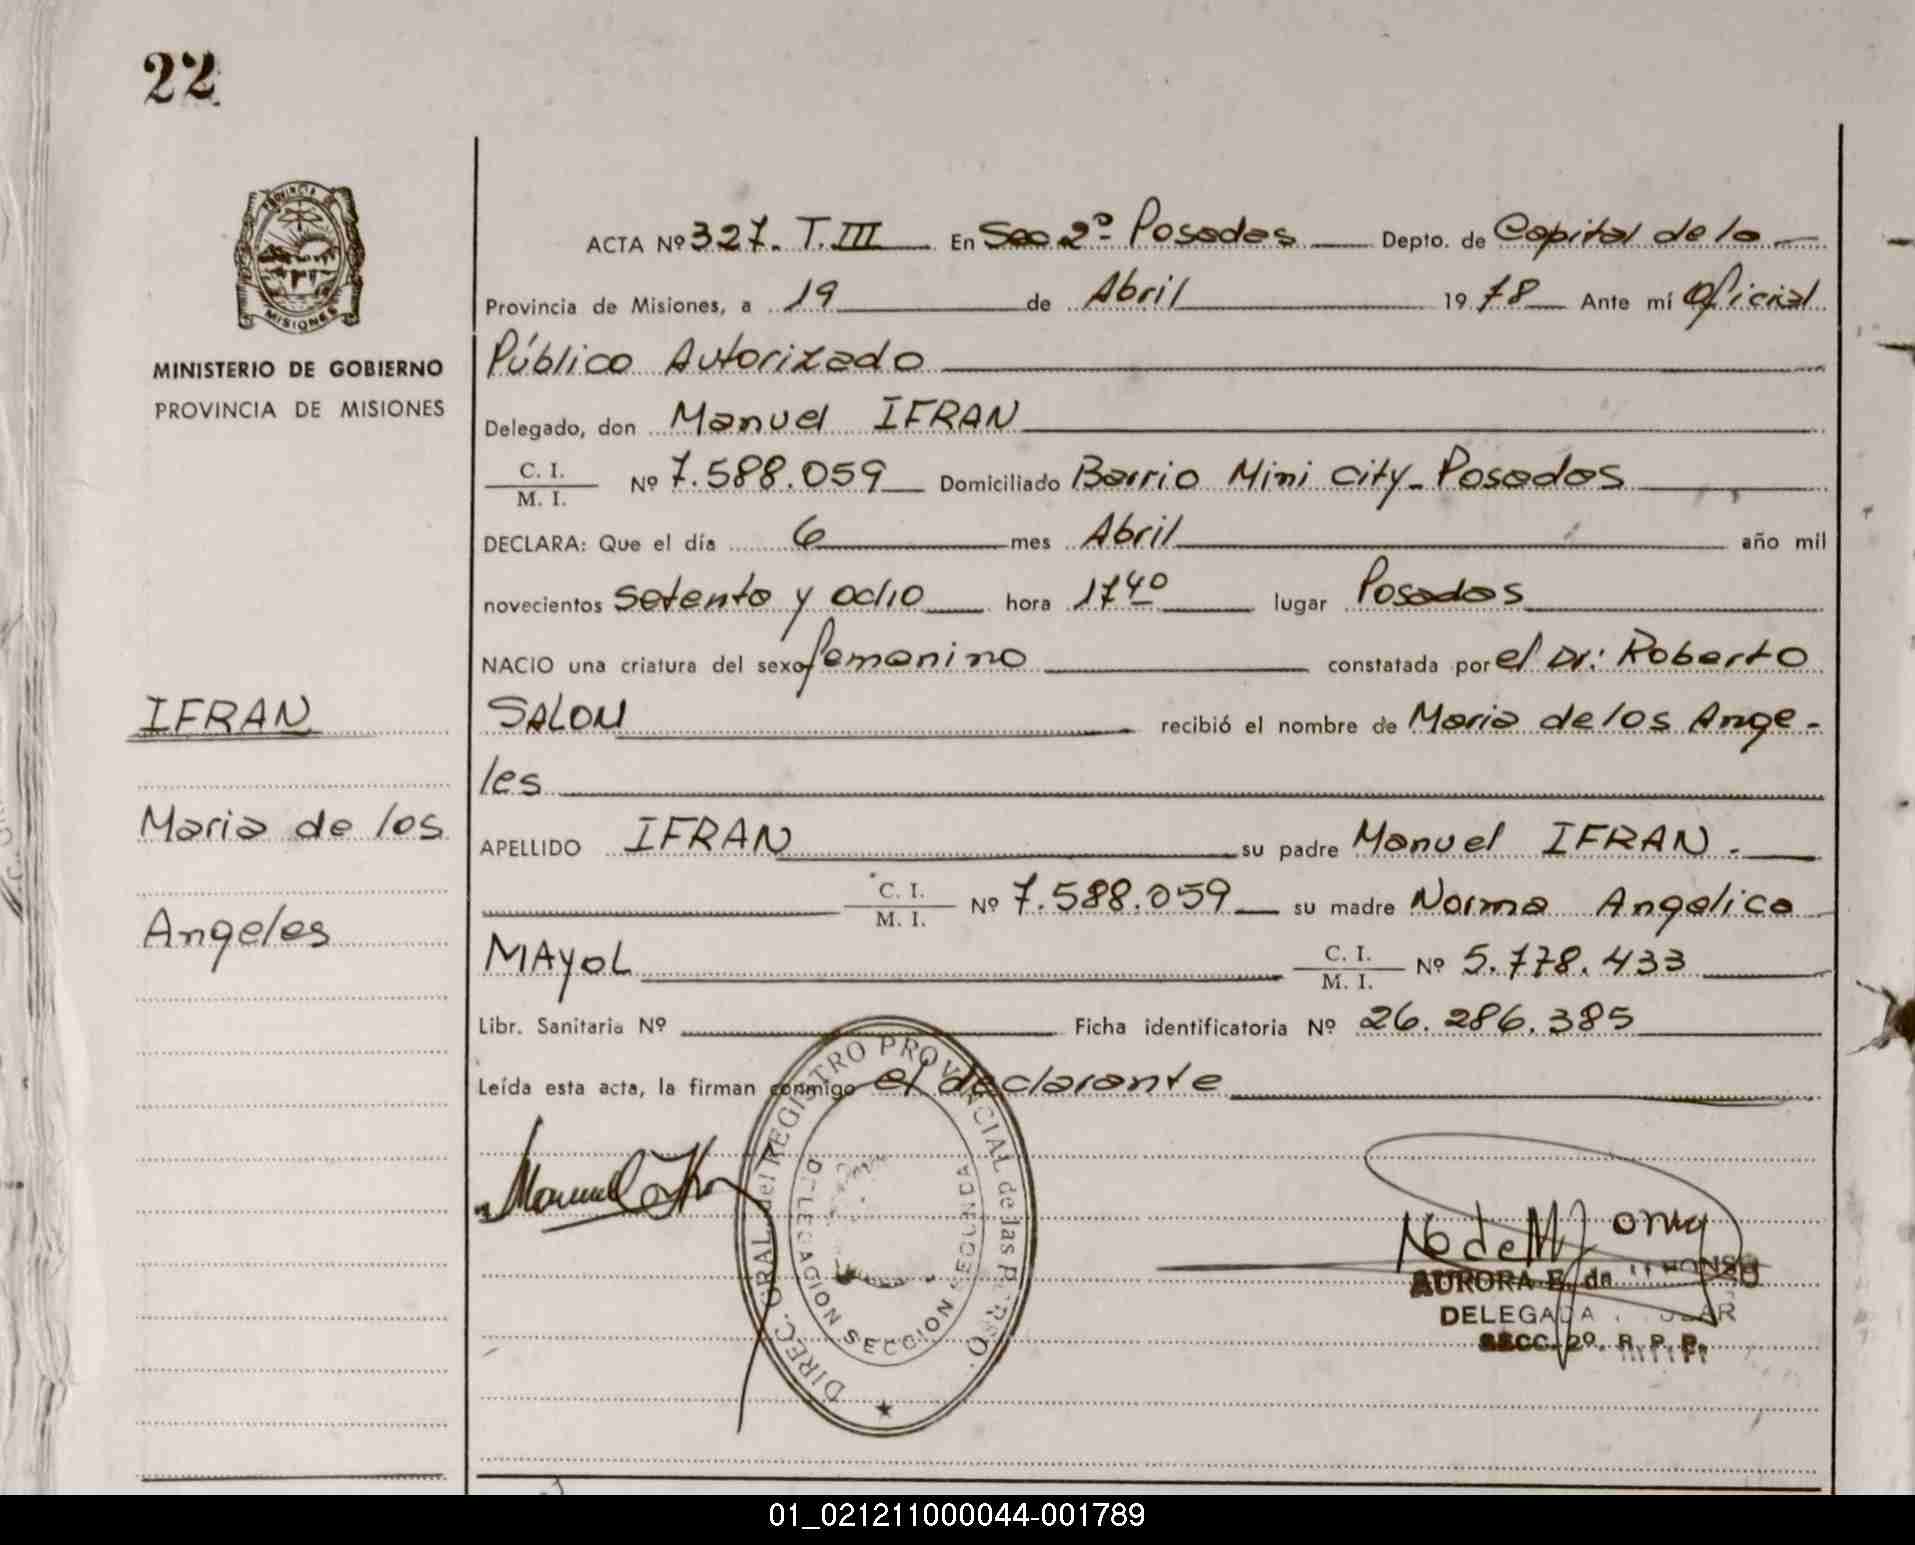 22
PROVINCIA DE
MISIONES
MINISTERIO DE GOBIERNO
PROVINCIA DE MISIONES
IFRAN
Maria de los
Angeles
ACTA Nº 327. T. III En Sec 2º Posadas Depto. de Capital de la
Provincia de Misiones, a 19 de Abril 19 78 Ante mí Oficial
Público Autorizado
Delegado, don Manuel IFRAN
C. I.
M. I. Nº 7.588.059 Domiciliado Barrio Mini City - Posadas
DECLARA: Que el día 6 mes Abril año mil
novecientos setenta y ocho hora 17 40 lugar Posadas
NACIO una criatura del sexo femenino constatada por el Dr: Roberto
SALOM recibió el nombre de Maria de los Ange-
les
APELLIDO IFRAN su padre Manuel IFRAN.
C. I.
M. I. Nº 7.588.059 su madre Norma Angelica
MAYOL C. I.
M. I. Nº 5.778.433
Libr. Sanitaria Nº Ficha identificatoria Nº 26.286.385
Leída esta acta, la firman conmigo el declarante
DIREC. GRAL. del REGISTRO PROVINCIAL de las
DELEGACION SECCION SEGUNDA
AURORA E. de
DELEGADA
SECC. 2º. R. P. P.
01_021211000044-001789